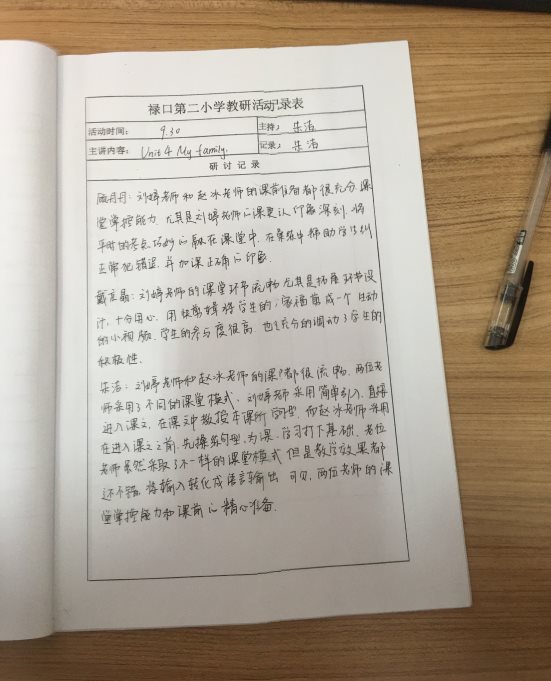 禄口第二小学教研活动记录表
活动时间： 9.30 主持： 朱洁
主讲内容： Unit 4 My family. 记录： 朱洁
研讨记录
月月：刘婷老师和赵冰老师的课前准备都很充分，课
堂掌控能力，尤其是刘婷老师的课更让印象深刻，将
平时的考点巧妙的融在课堂中，在集体中帮助学生纠
正常犯错误，并加深正确的印象。
戴：刘婷老师的课堂环节流畅，尤其是拓展环节设
计，十分用心，用快剪辑将学生的全家福剪成一个生动
的小视频，学生的参与度很高，也充分的调动了学生的
积极性。
朱洁：刘婷老师和赵冰老师的课都很流畅，两位老
师采用了不同的课堂模式，刘婷老师采用简单引入，直接
进入课文，在课文中教授本课所学句型，而赵冰老师采用
在进入课文之前，先操练句型，为课文学习打下基础，老位
老师虽然采取了不一样的课堂模式，但是教学效果都
还不错，将输入转化成语言输出，可见，两位老师的课
堂掌控能力和课前的精心准备。